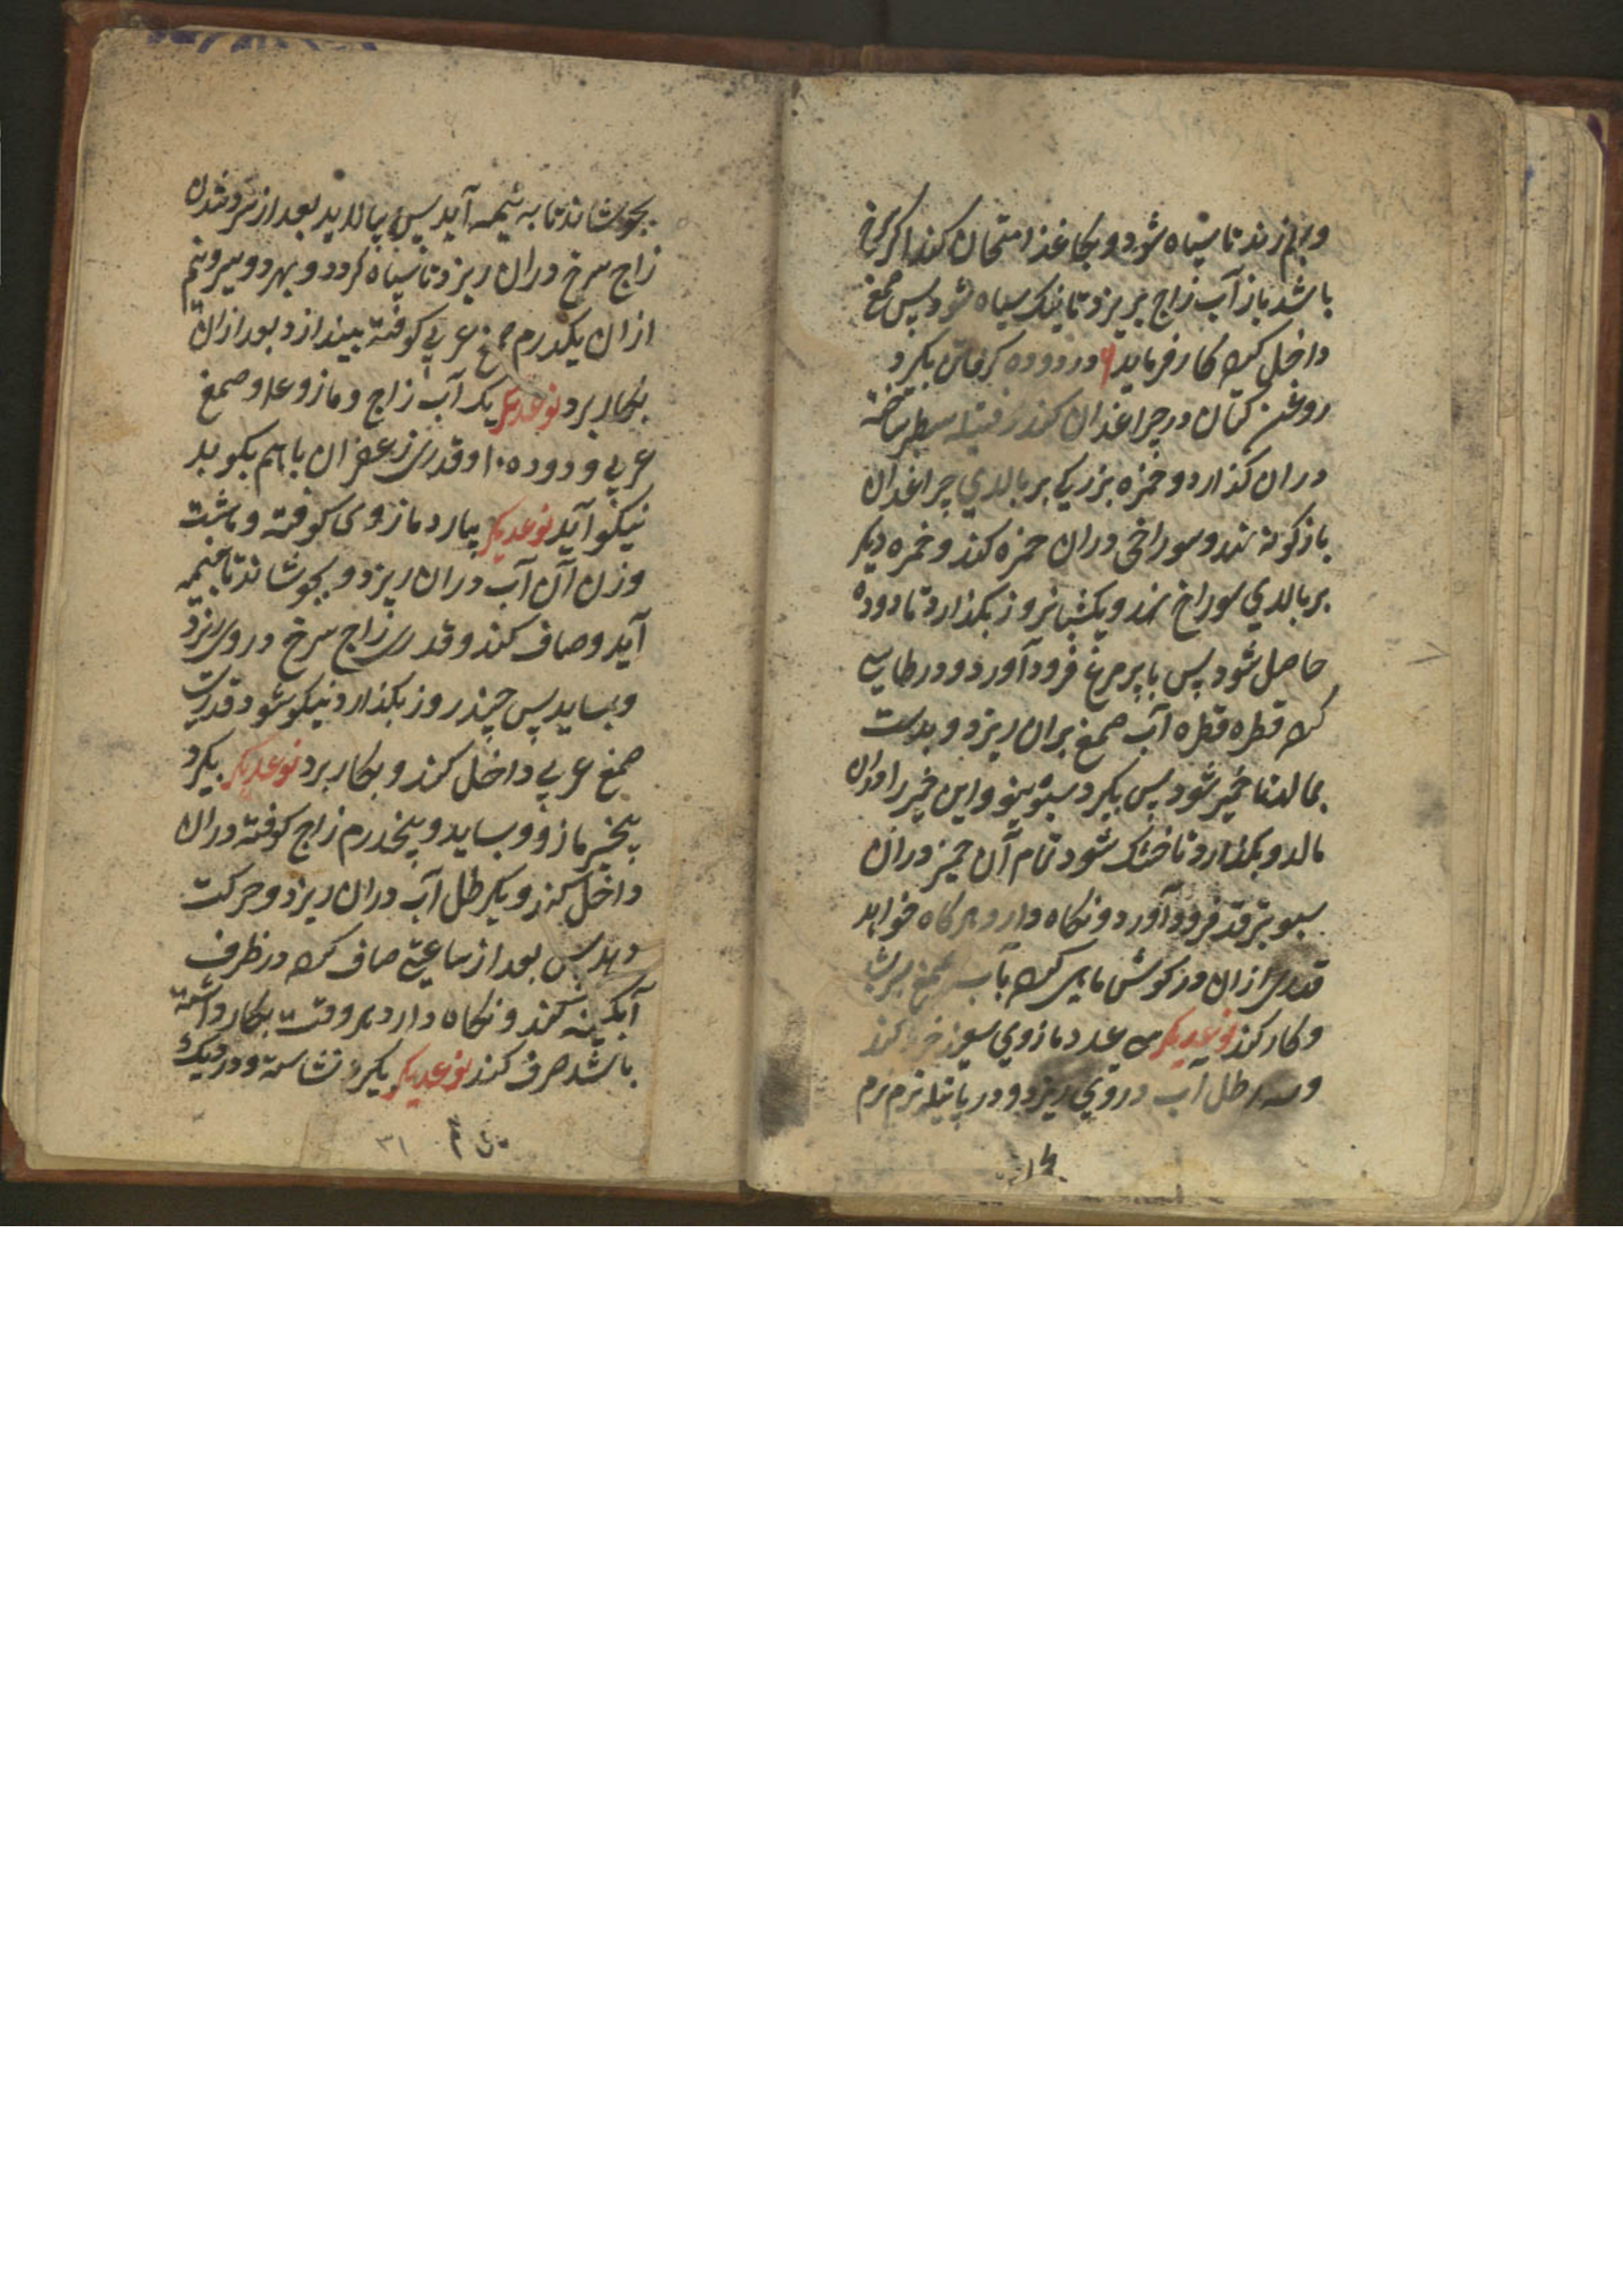 و برهم زند تا سیاه شود و بکاغذ امتحان کند اکر سرخ
باشد باز آب زاج بریزد تا نیک سیاه شود پس صمغ
داخل کرده کار فرماید در دوده کرفتن بکیرد
روغن کتان در چراغدان کند و فتیله سطبر ساخته
دران کذارد و خمره بزرکی بر بالای چراغدان
بازکونه نهد و سوراخی دران خمره کند و خمره دیکر
بر بالای سوراخ نهد و یکشبانروز بکذارد تا دوده
حاصل شود پس با پر مرغ فرود آورد و در طاسی
کرده قطره قطره آب صمغ بران ریزد و بدست
بمالد تا خمیر شود پس بکیرد سبوی نو و این خمیر را در آن
مالد و بکذارد تا خشک شود تمام آن خمیر در آن
سبو بترقد فرود آورد و نکاه دارد هرکاه خواهد
قدری ازان در کوش ماهی کرده بآب صمغ
و کار کند نوعدیکر سی عدد مازوی سبز خرد کند
و سه رطل آب در وی ریزد و در پاتیله نرم نرم
بجوشاند تا به نیمه آید پس بپالاید بعد از سرد شدن
زاج سرخ دران ریزد تا سیاه کردد و بهر دو سیر و نیم
ازان یکدرم صمغ عربی کوفته بیندازد بعد ازان
بکار برد نوعدیکر یک آب زاج و مازو و صمغ
عربی و دوده ۱۰ و قدری زعفران باهم بکوبد
نیکو آید نوعدیکر بیارد مازوی کوفته و هشت
وزن آن آب دران ریزد و بجوشاند تا بنیمه
آید و صاف کند و قدری زاج سرخ در وی ریزد
و بساید پس چند روز بکذارد نیکو شود قدری
صمغ عربی داخل کند و بکار برد نوعدیکر بکیرد
پنج سیر مازو و بساید و پنجدرم زاج کوفته دران
داخل کند و یکرطل آب دران ریزد و حرکت
دهد پس بعد از ساعتی صاف کرده در ظرف
آبکینه کند و نکاه دارد هر وقت بکار داشته
باشد صرف کند نوعدیکر بکیرد نشاسته و در دیک
۳۱